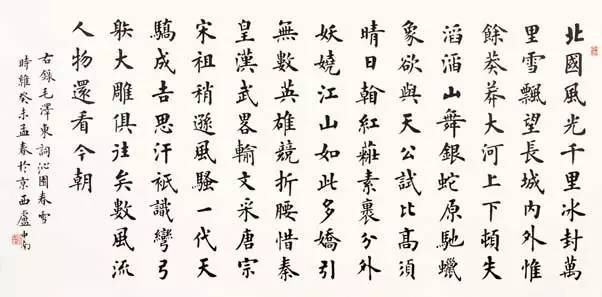 北國風光千里冰封萬
里雪飄望長城内外惟
餘莽莽大河上下頓失
滔滔山舞銀蛇原馳蠟
象欲與天公試比高須
晴日紅素裹分外
妖嬈江山如此多嬌引
無數英雄競折腰惜秦
皇漢武畧輸文采唐宗
宋祖稍遜風騷一代天
驕成吉思汗祇識彎弓
䠶大雕俱往矣數風流
人物還看今朝
右錄毛澤東詞沁園春雪
時維癸未孟春於京西盧中南